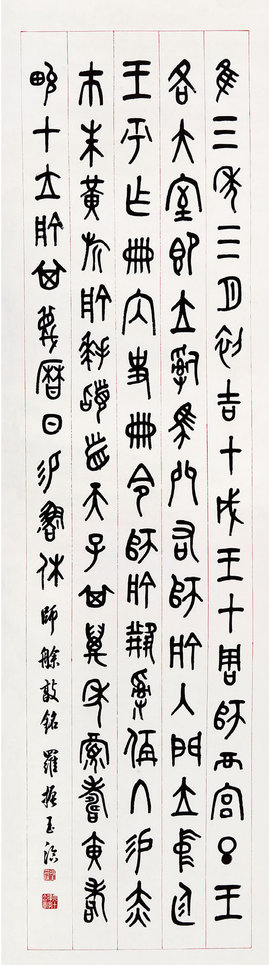 隹三年三月初吉甲戌王才周師彔宮旦王
各大室即立𤔲馬共右師艅入門立中廷
王乎乍冊內史冊令師艅𤔲人易赤
巿朱黃旂艅拜稽首天子其萬年眉壽黃耇
畯才立艅其蔑曆日易魯休 師艅敦銘 羅振玉臨